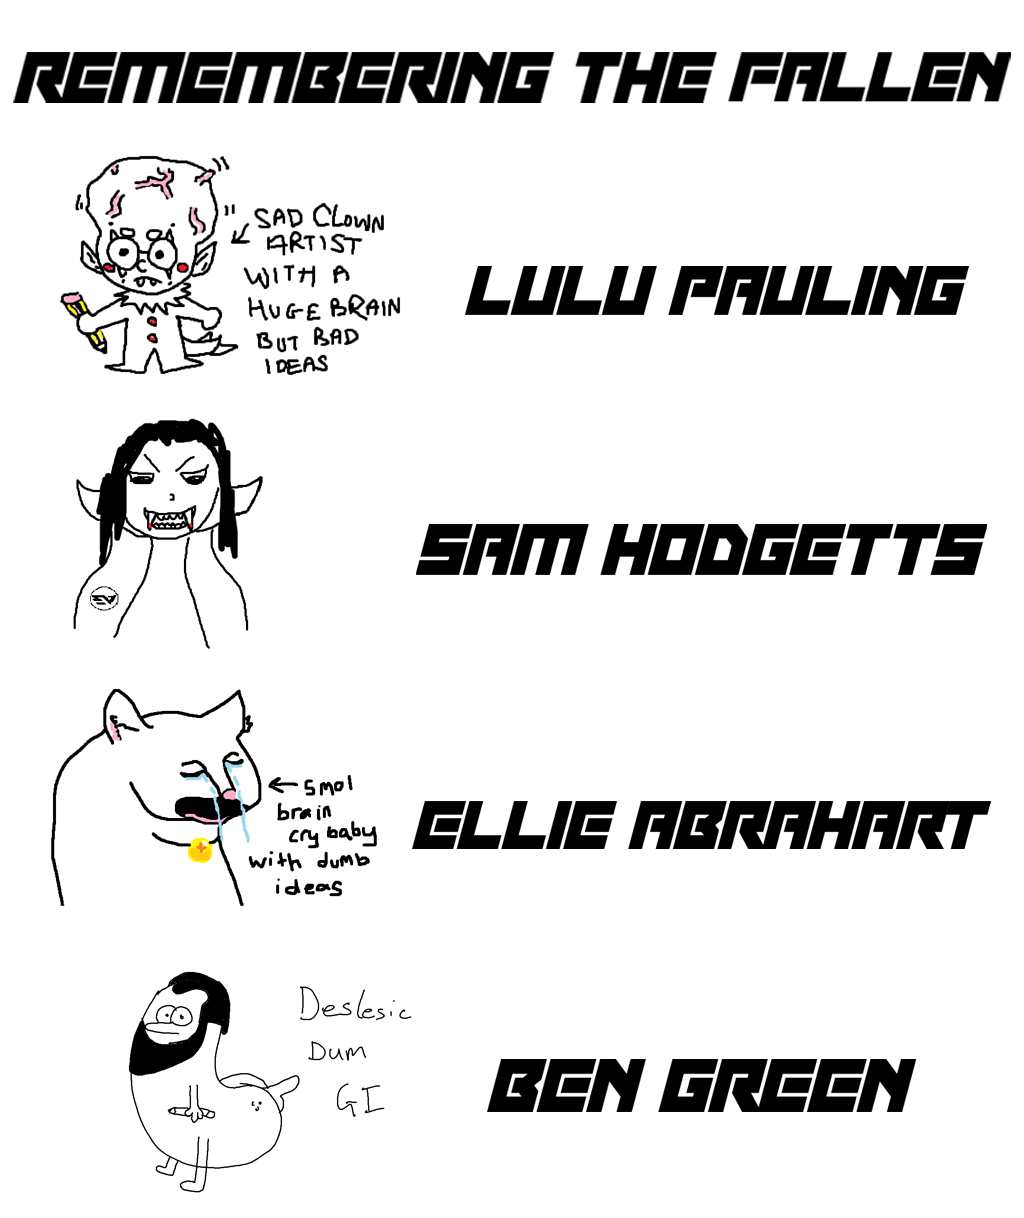 REMEMBERING THE FALLEN
SAD CLOWN
ARTIST
WITH A
HUGE BRAIN
BUT BAD
IDEAS
LULU PAULING
SAM HODGETTS
EV
smol
brain
cry baby
with dumb
ideas
ELLIE ABRAHART
Deslesic
DUM
GI
BEN GREEN